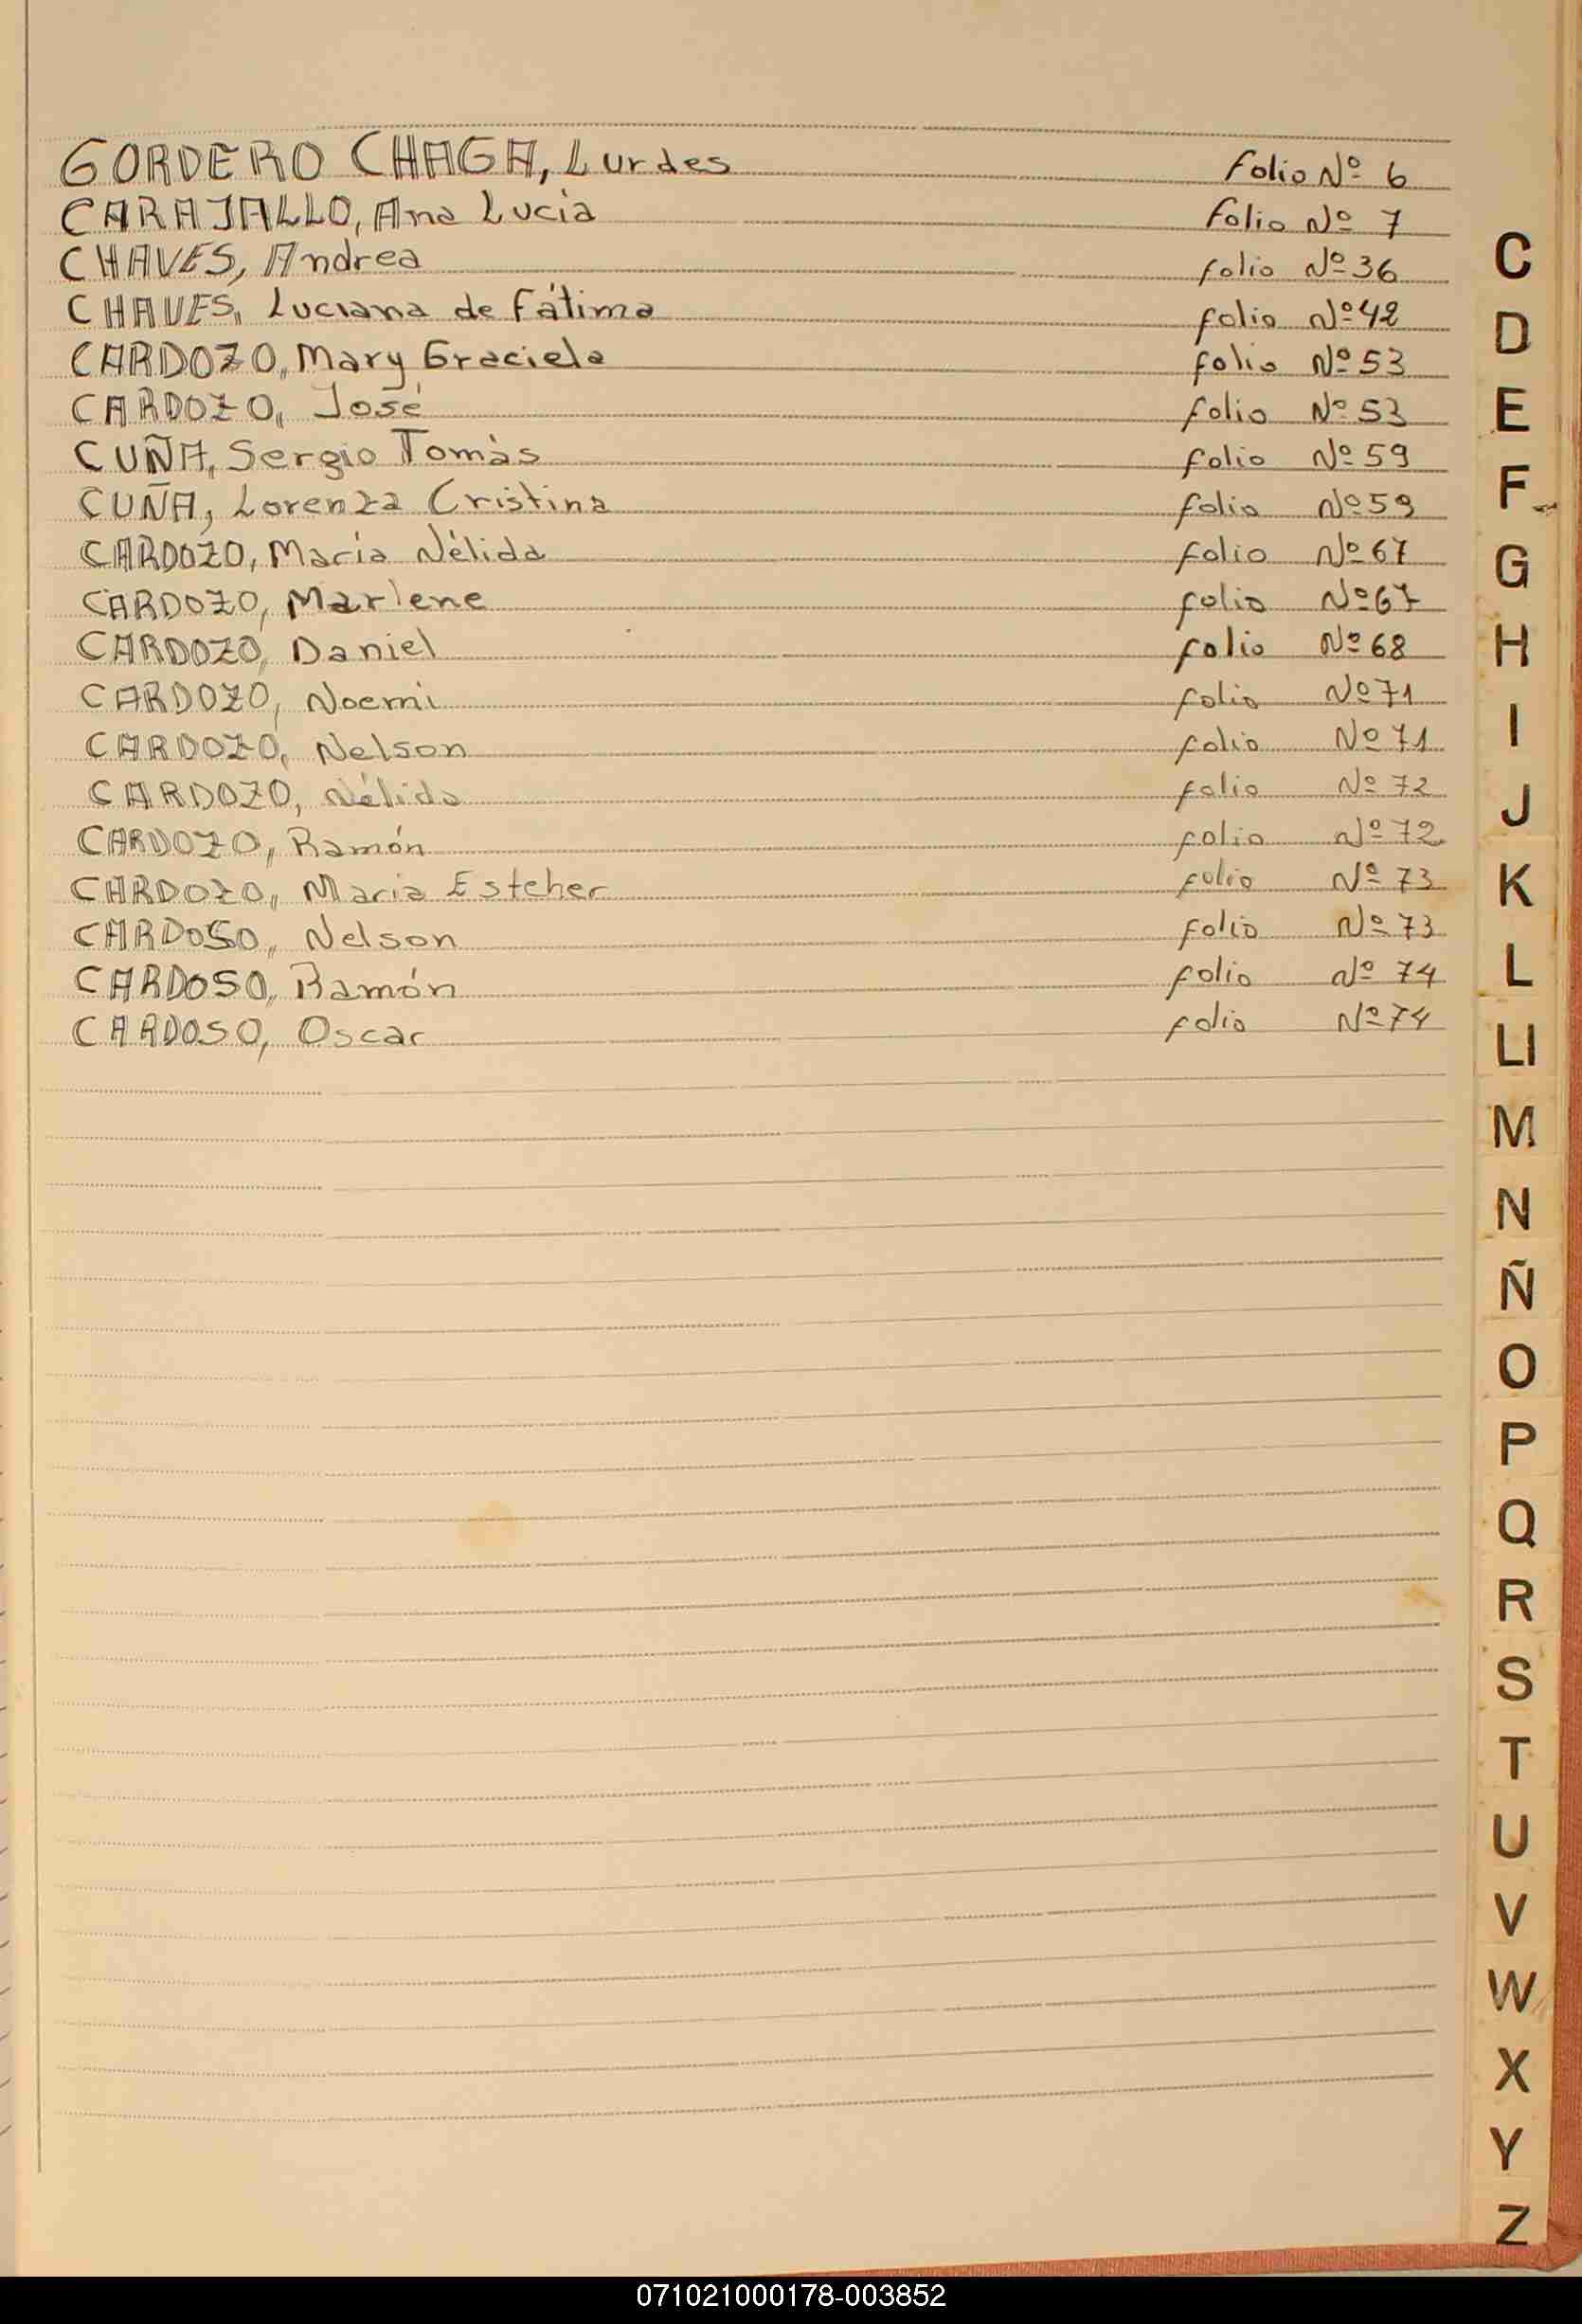 GORDERO CHAGA, Lurdes folio Nº 6
CARAJALLO, Ana Lucia folio Nº 7
CHAVES, Andrea folio Nº 36
CHAVES, Luciana de Fátima folio Nº 42
CARDOZO, Mary Graciela folio Nº 53
CARDOZO, José folio Nº 53
CUÑA, Sergio Tomàs folio Nº 59
CUÑA, Lorenza Cristina folio Nº 59
CARDOZO, María Nélida folio Nº 67
CARDOZO, Marlene folio Nº 67
CARDOZO, Daniel folio Nº 68
CARDOZO, Noemi folio Nº 71
CARDOZO, Nelson folio Nº 71
CARDOZO, Nélida folio Nº 72
CARDOZO, Ramón folio Nº 72
CARDOZO, Maria Esteher folio Nº 73
CARDOSO, Nelson folio Nº 73
CARDOSO, Ramón folio Nº 74
CARDOSO, Oscar folio Nº 74
C
D
E
F
G
H
I
J
K
L
Ll
M
N
Ñ
O
P
Q
R
S
T
U
V
W
X
Y
Z
071021000178-003852